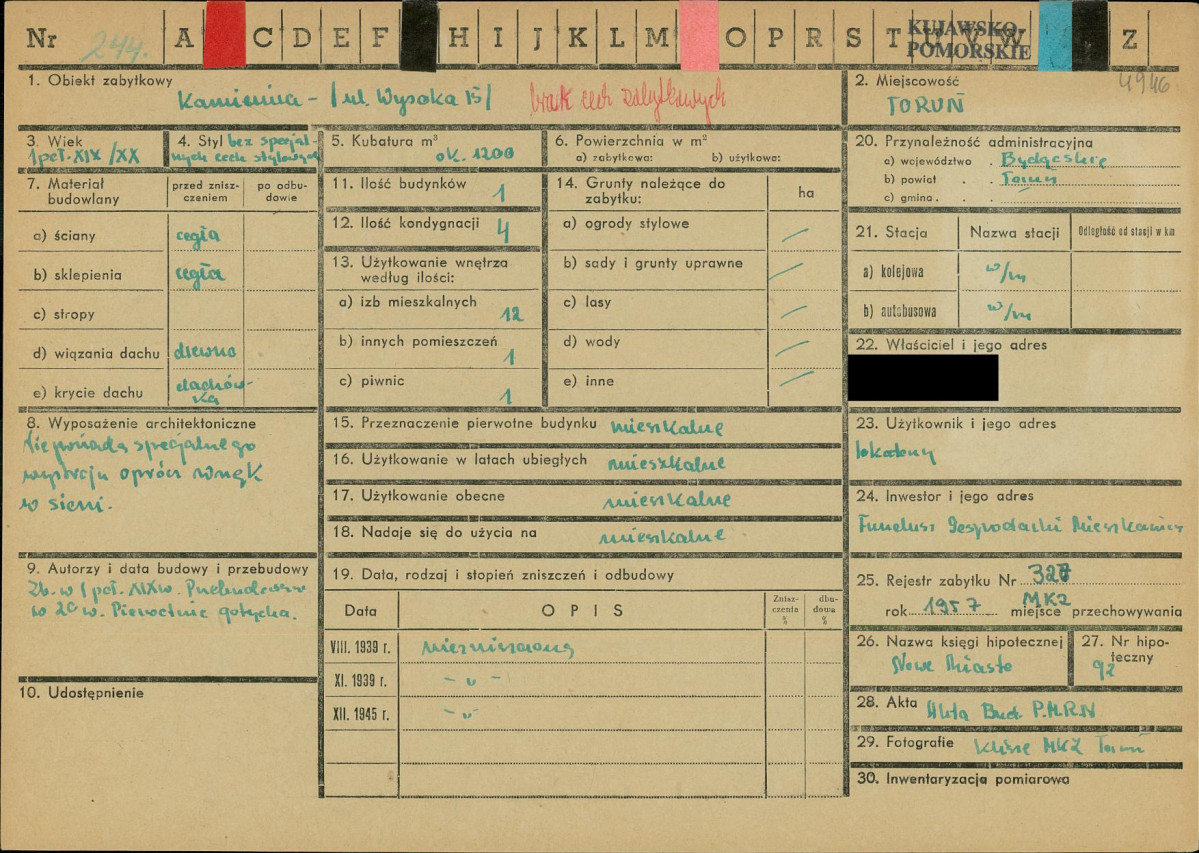 Nr 244. A C D E F H I J K L M O P R S T W Z
KUJAWSKO
POMORSKIE
4946
1. Obiekt zabytkowy
Kamienica - /ul. Wysoka 15/ brak cech zabytkowych
2. Miejscowość
TORUŃ
3. Wiek
1 poł. XIX/XX
4. Styl bez specjal-
nych cech stylowych
5. Kubatura m³
ok. 1200
6. Powierzchnia w m²
a) zabytkowa: b) użytkowa:
7. Materiał budowlany
przed znisz-
czeniem
po odbu-
dowie
a) ściany cegła
b) sklepienia cegła
c) stropy
d) wiązania dachu drewno
e) krycie dachu dachów-
ka
8. Wyposażenie architektoniczne
Nie posiada specjalnego
wystroju oprócz wnęk
w sieni.
9. Autorzy i data budowy i przebudowy
Zb. w 1 poł. XIX w. Przebudowano
w 20 w. Pierwotnie gotycka.
10. Udostępnienie
11. Ilość budynków 1
12. Ilość kondygnacji 4
13. Użytkowanie wnętrza
według ilości:
a) izb mieszkalnych 12
b) innych pomieszczeń 1
c) piwnic 1
14. Grunty należące do
zabytku:
ha
a) ogrody stylowe —
b) sady i grunty uprawne —
c) lasy —
d) wody —
e) inne —
15. Przeznaczenie pierwotne budynku mieszkalne
16. Użytkowanie w latach ubiegłych mieszkalne
17. Użytkowanie obecne mieszkalne
18. Nadaje się do użycia na mieszkalne
19. Data, rodzaj i stopień zniszczeń i odbudowy
Data OPIS
Znisz-
czenia
%
dbu-
dowa
%
VIII. 1939 r. niezniszczony
XI. 1939 r. - " -
XII. 1945 r. - " -
20. Przynależność administracyjna
a) województwo . Bydgoskie
b) powiat . . Toruń
c) gmina . . .
21. Stacja Nazwa stacji Odległość od stacji w km
a) kolejowa w/m
b) autobusowa w/m
22. Właściciel i jego adres
23. Użytkownik i jego adres
lokatorzy
24. Inwestor i jego adres
Fundusz Gospodarki Mieszkaniow
25. Rejestr zabytku Nr 327
rok 1957 miejsce przechowywania
MKZ
26. Nazwa księgi hipotecznej
Nowe Miasto
27. Nr hipo-
teczny
92
28. Akta Akta Bud. P.M.R.N
29. Fotografie Klisze MKZ Toruń
30. Inwentaryzacja pomiarowa